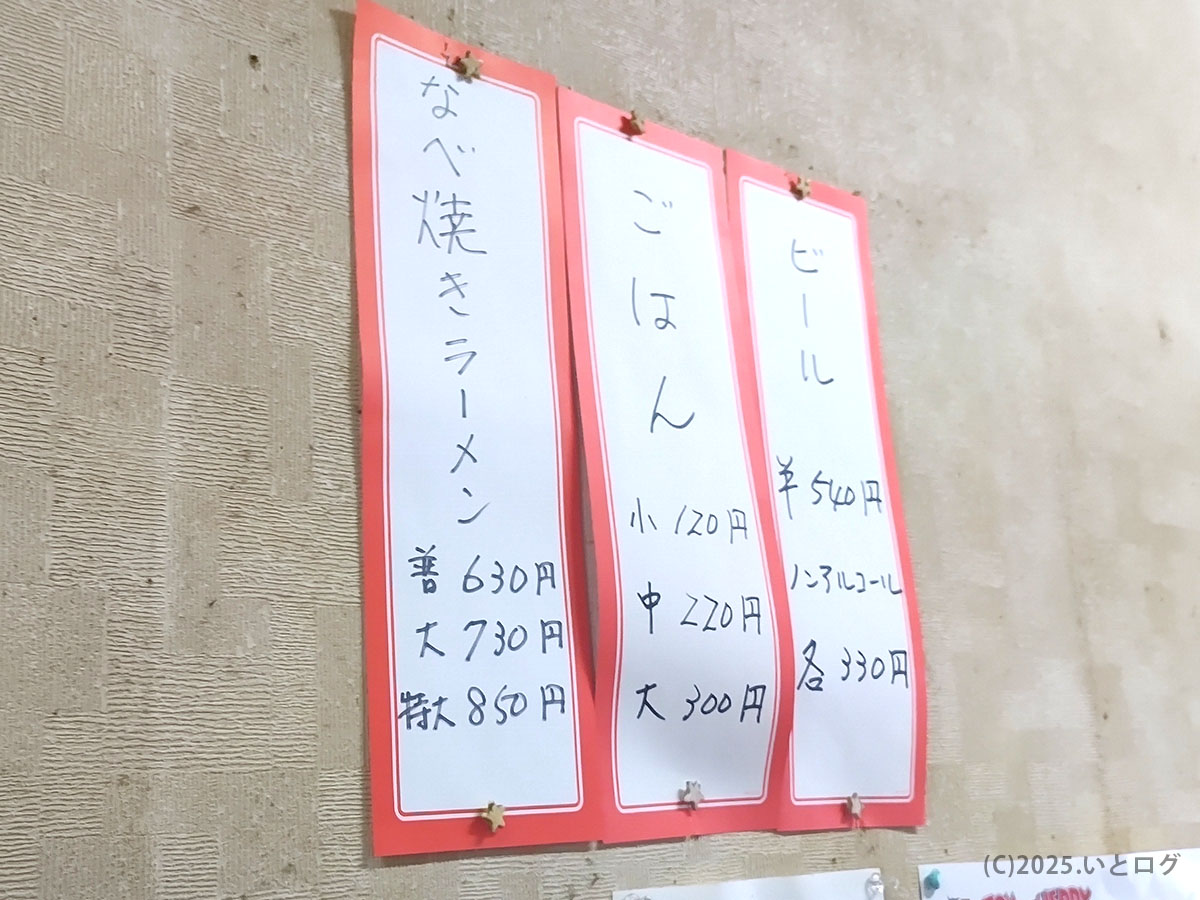 なべ焼きラーメン
普 630円
大 730円
特大 850円
ごはん
小 120円
中 220円
大 300円
ビール
540円
ノンアルコール
各 330円
(C)2025.いとログ